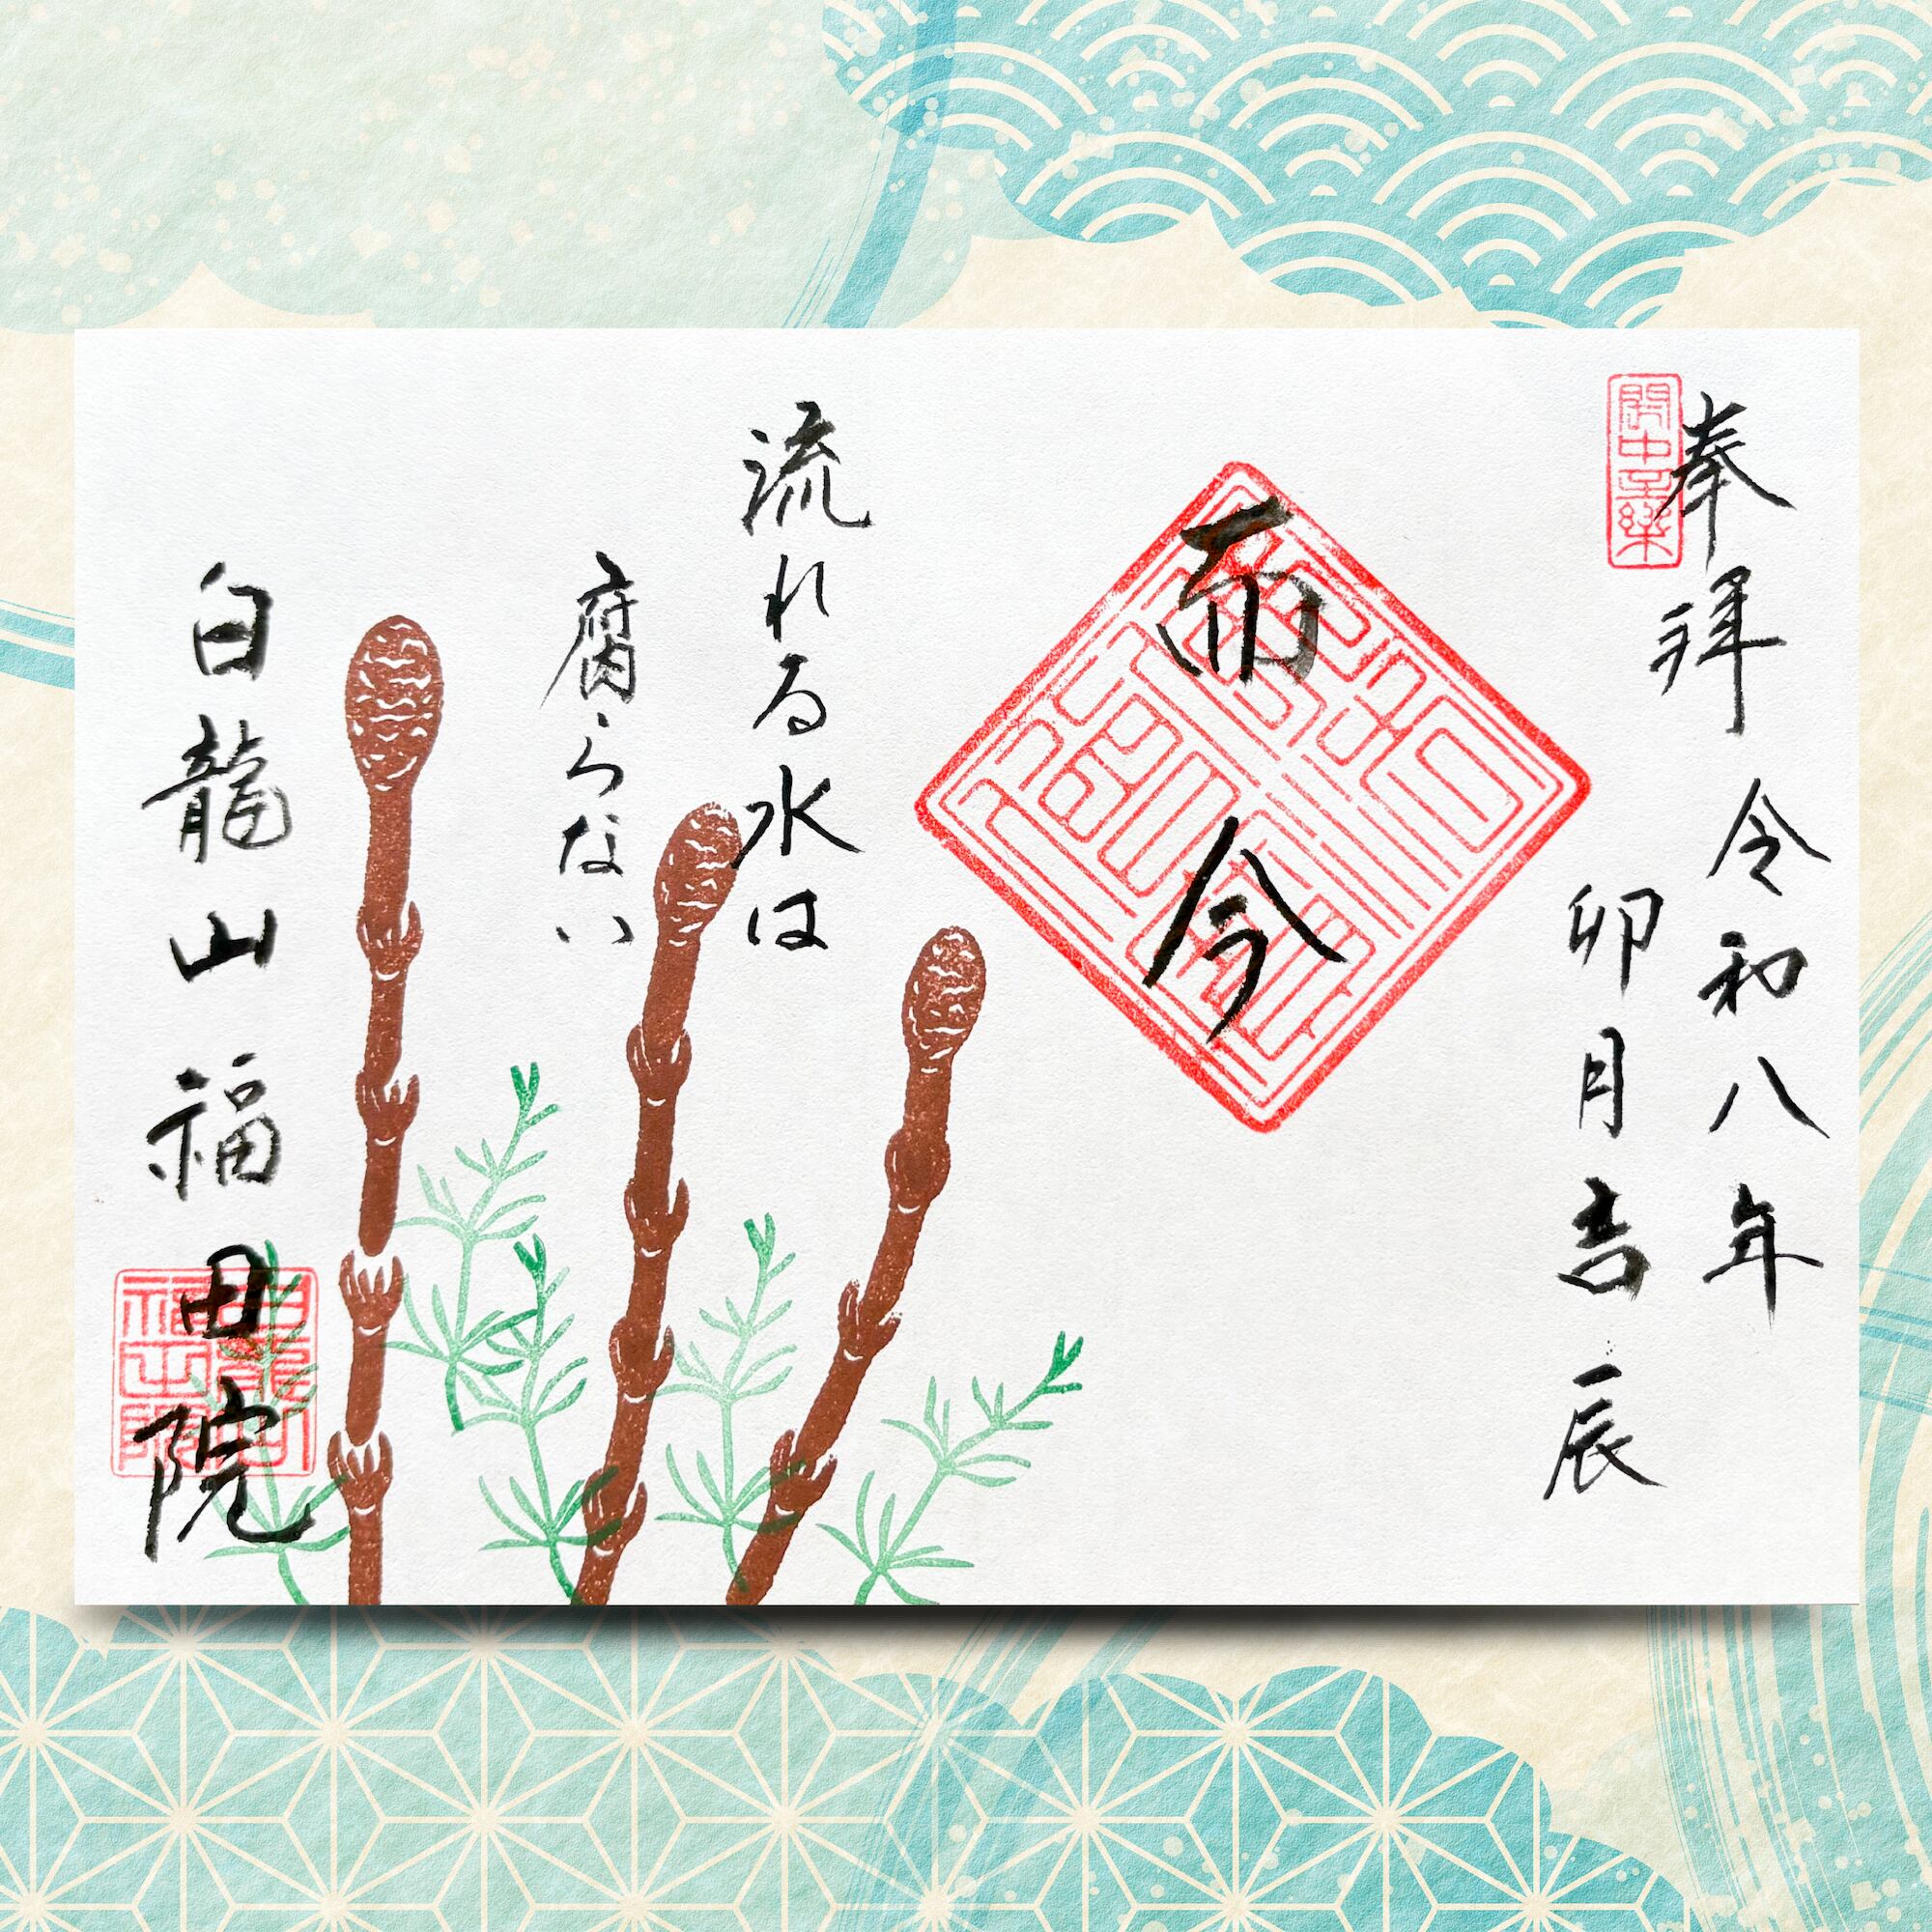 奉拝
令和八年
卯月吉辰
而今
流れる水は
腐らない
白龍山福田院